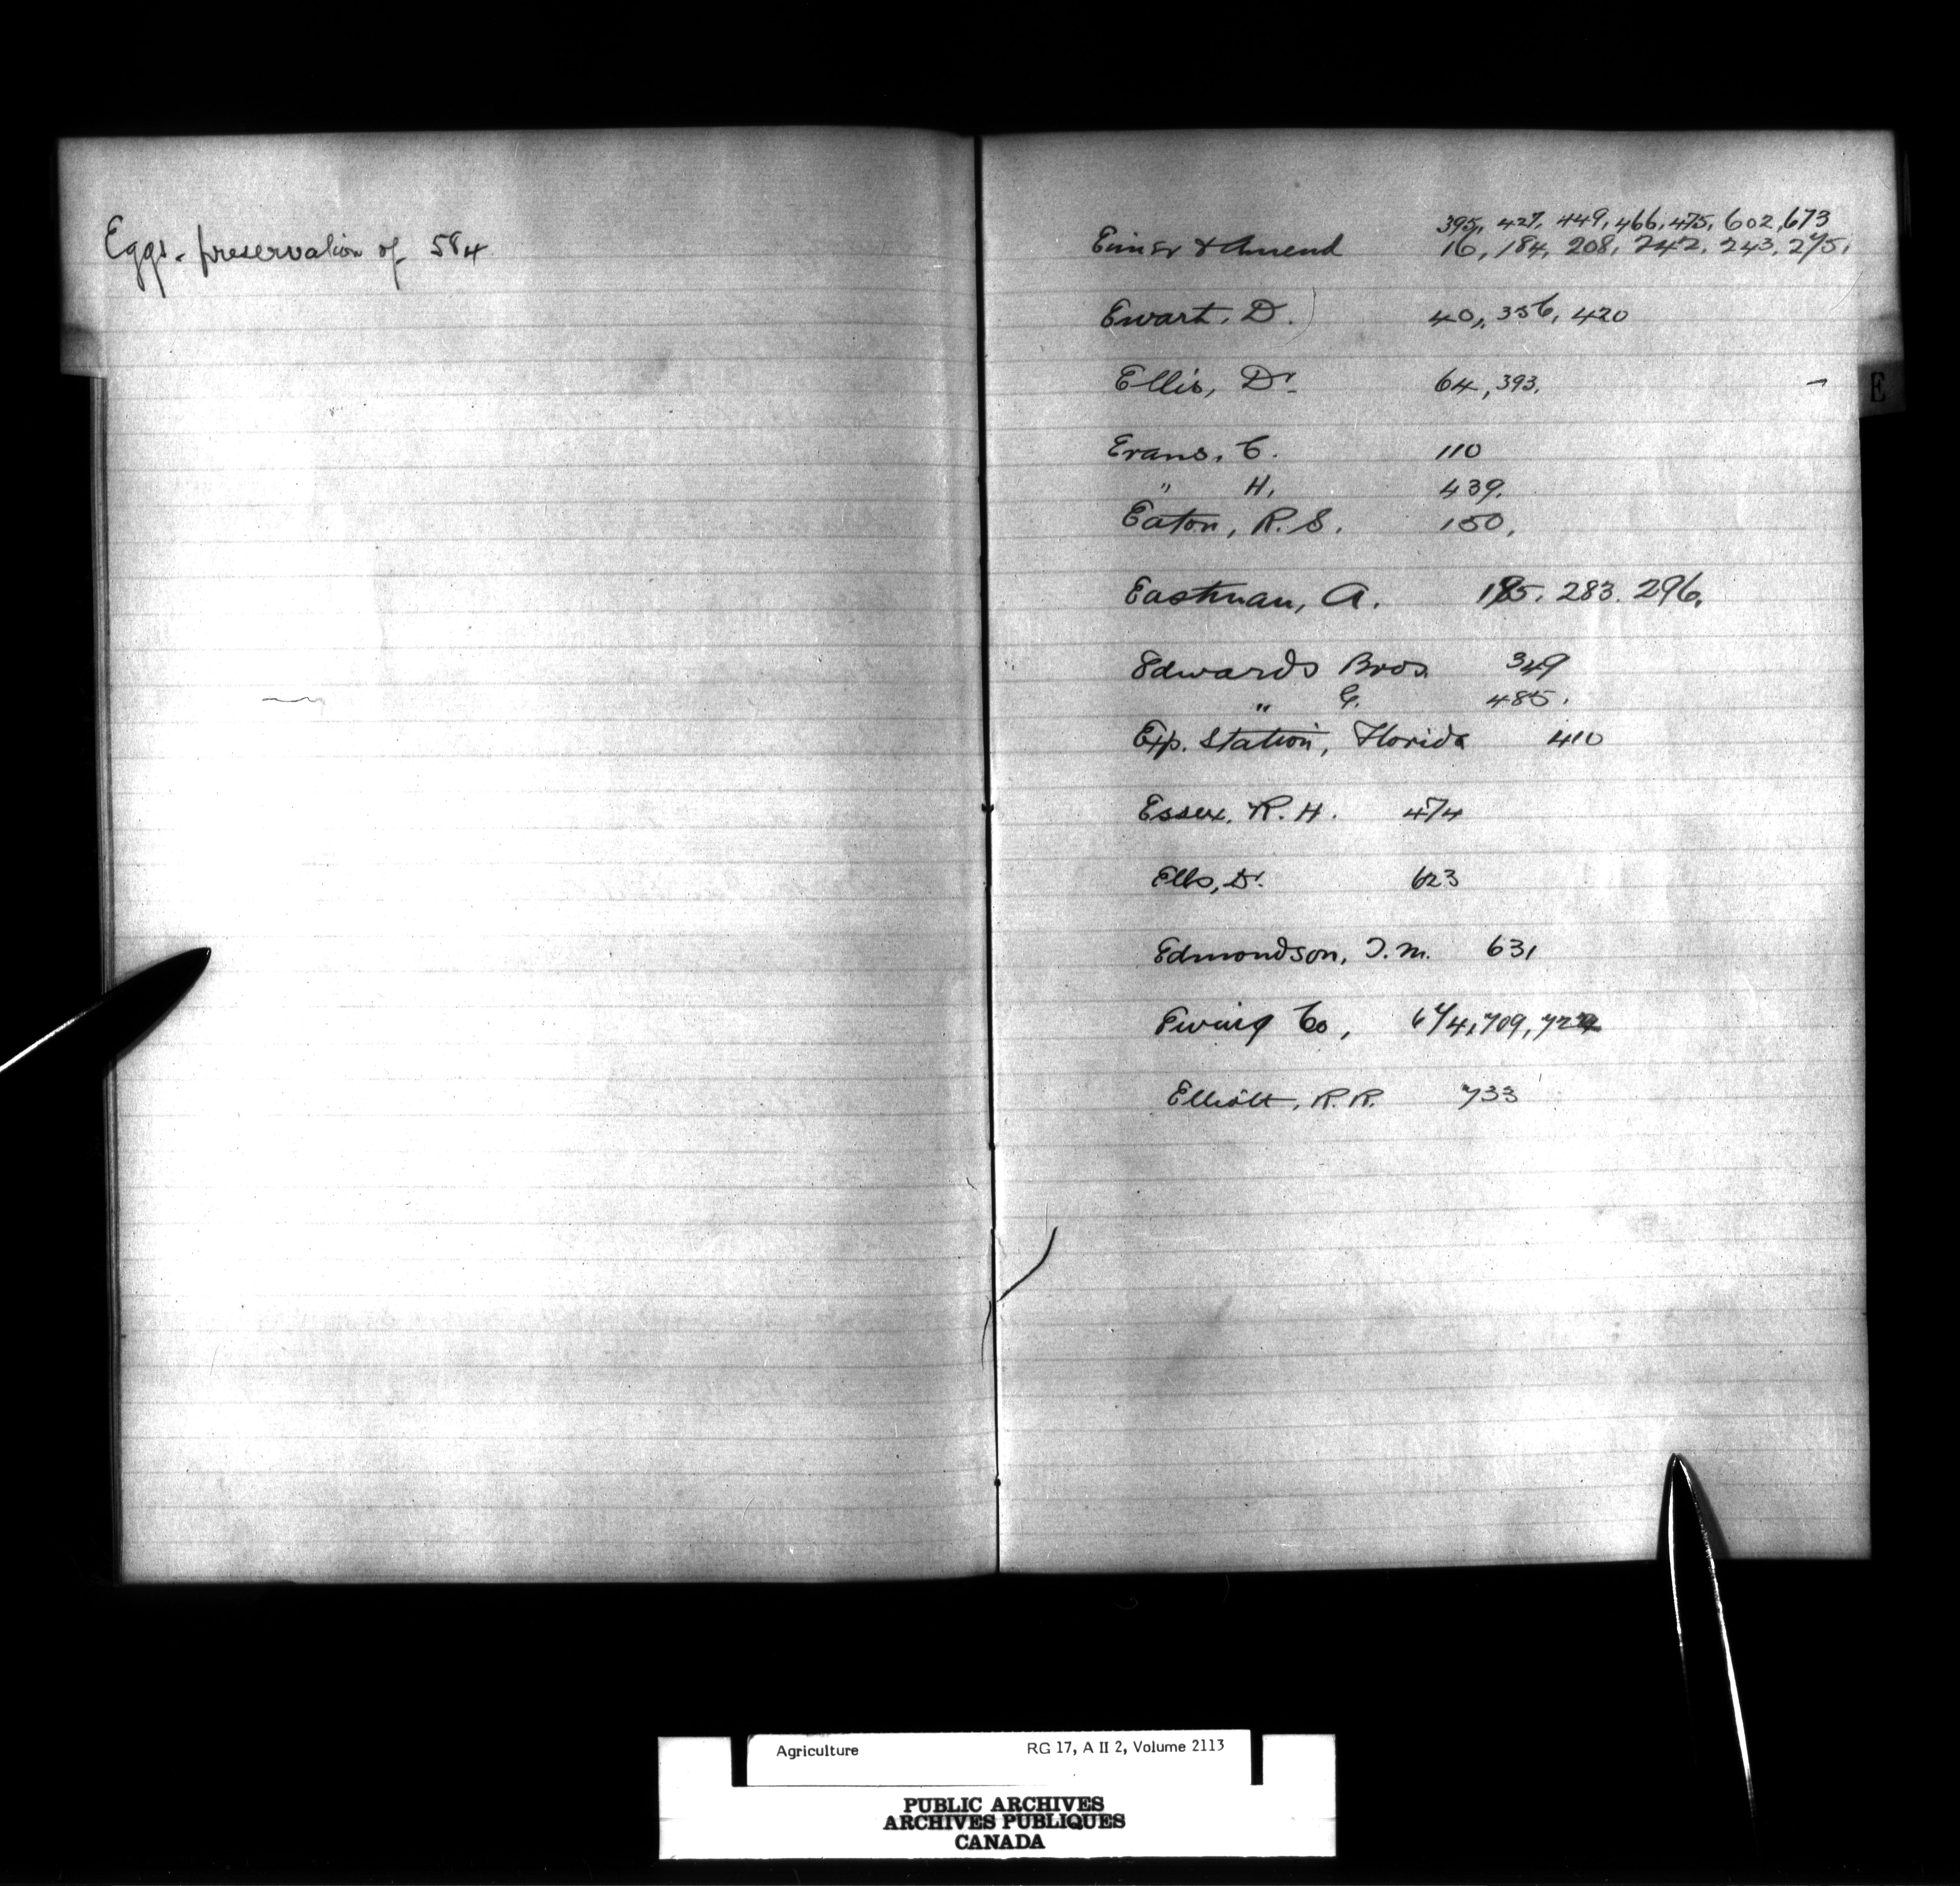 Eggs. preservation of 584
395, 427, 449, 466, 475, 602, 673
Eimer & Amend 16, 184, 208, 242, 243, 275,
Ewart, D. 40, 356, 420
Ellis, Dr. 64, 393.
E
Evans, C. 110
" H, 439.
Eaton, R. S. 150,
Eastman, A. 283. 296.
Edwards Bros. 349
" G. 485.
Exp. Station, Florida 410
Essex, R. H. 474
Ells, Dr. 623
Edmondson, J. M. 631
Ewing Co, 674, 709,
Elliott, R. R. 733
Agriculture RG 17, A II 2, Volume 2113
PUBLIC ARCHIVES
ARCHIVES PUBLIQUES
CANADA